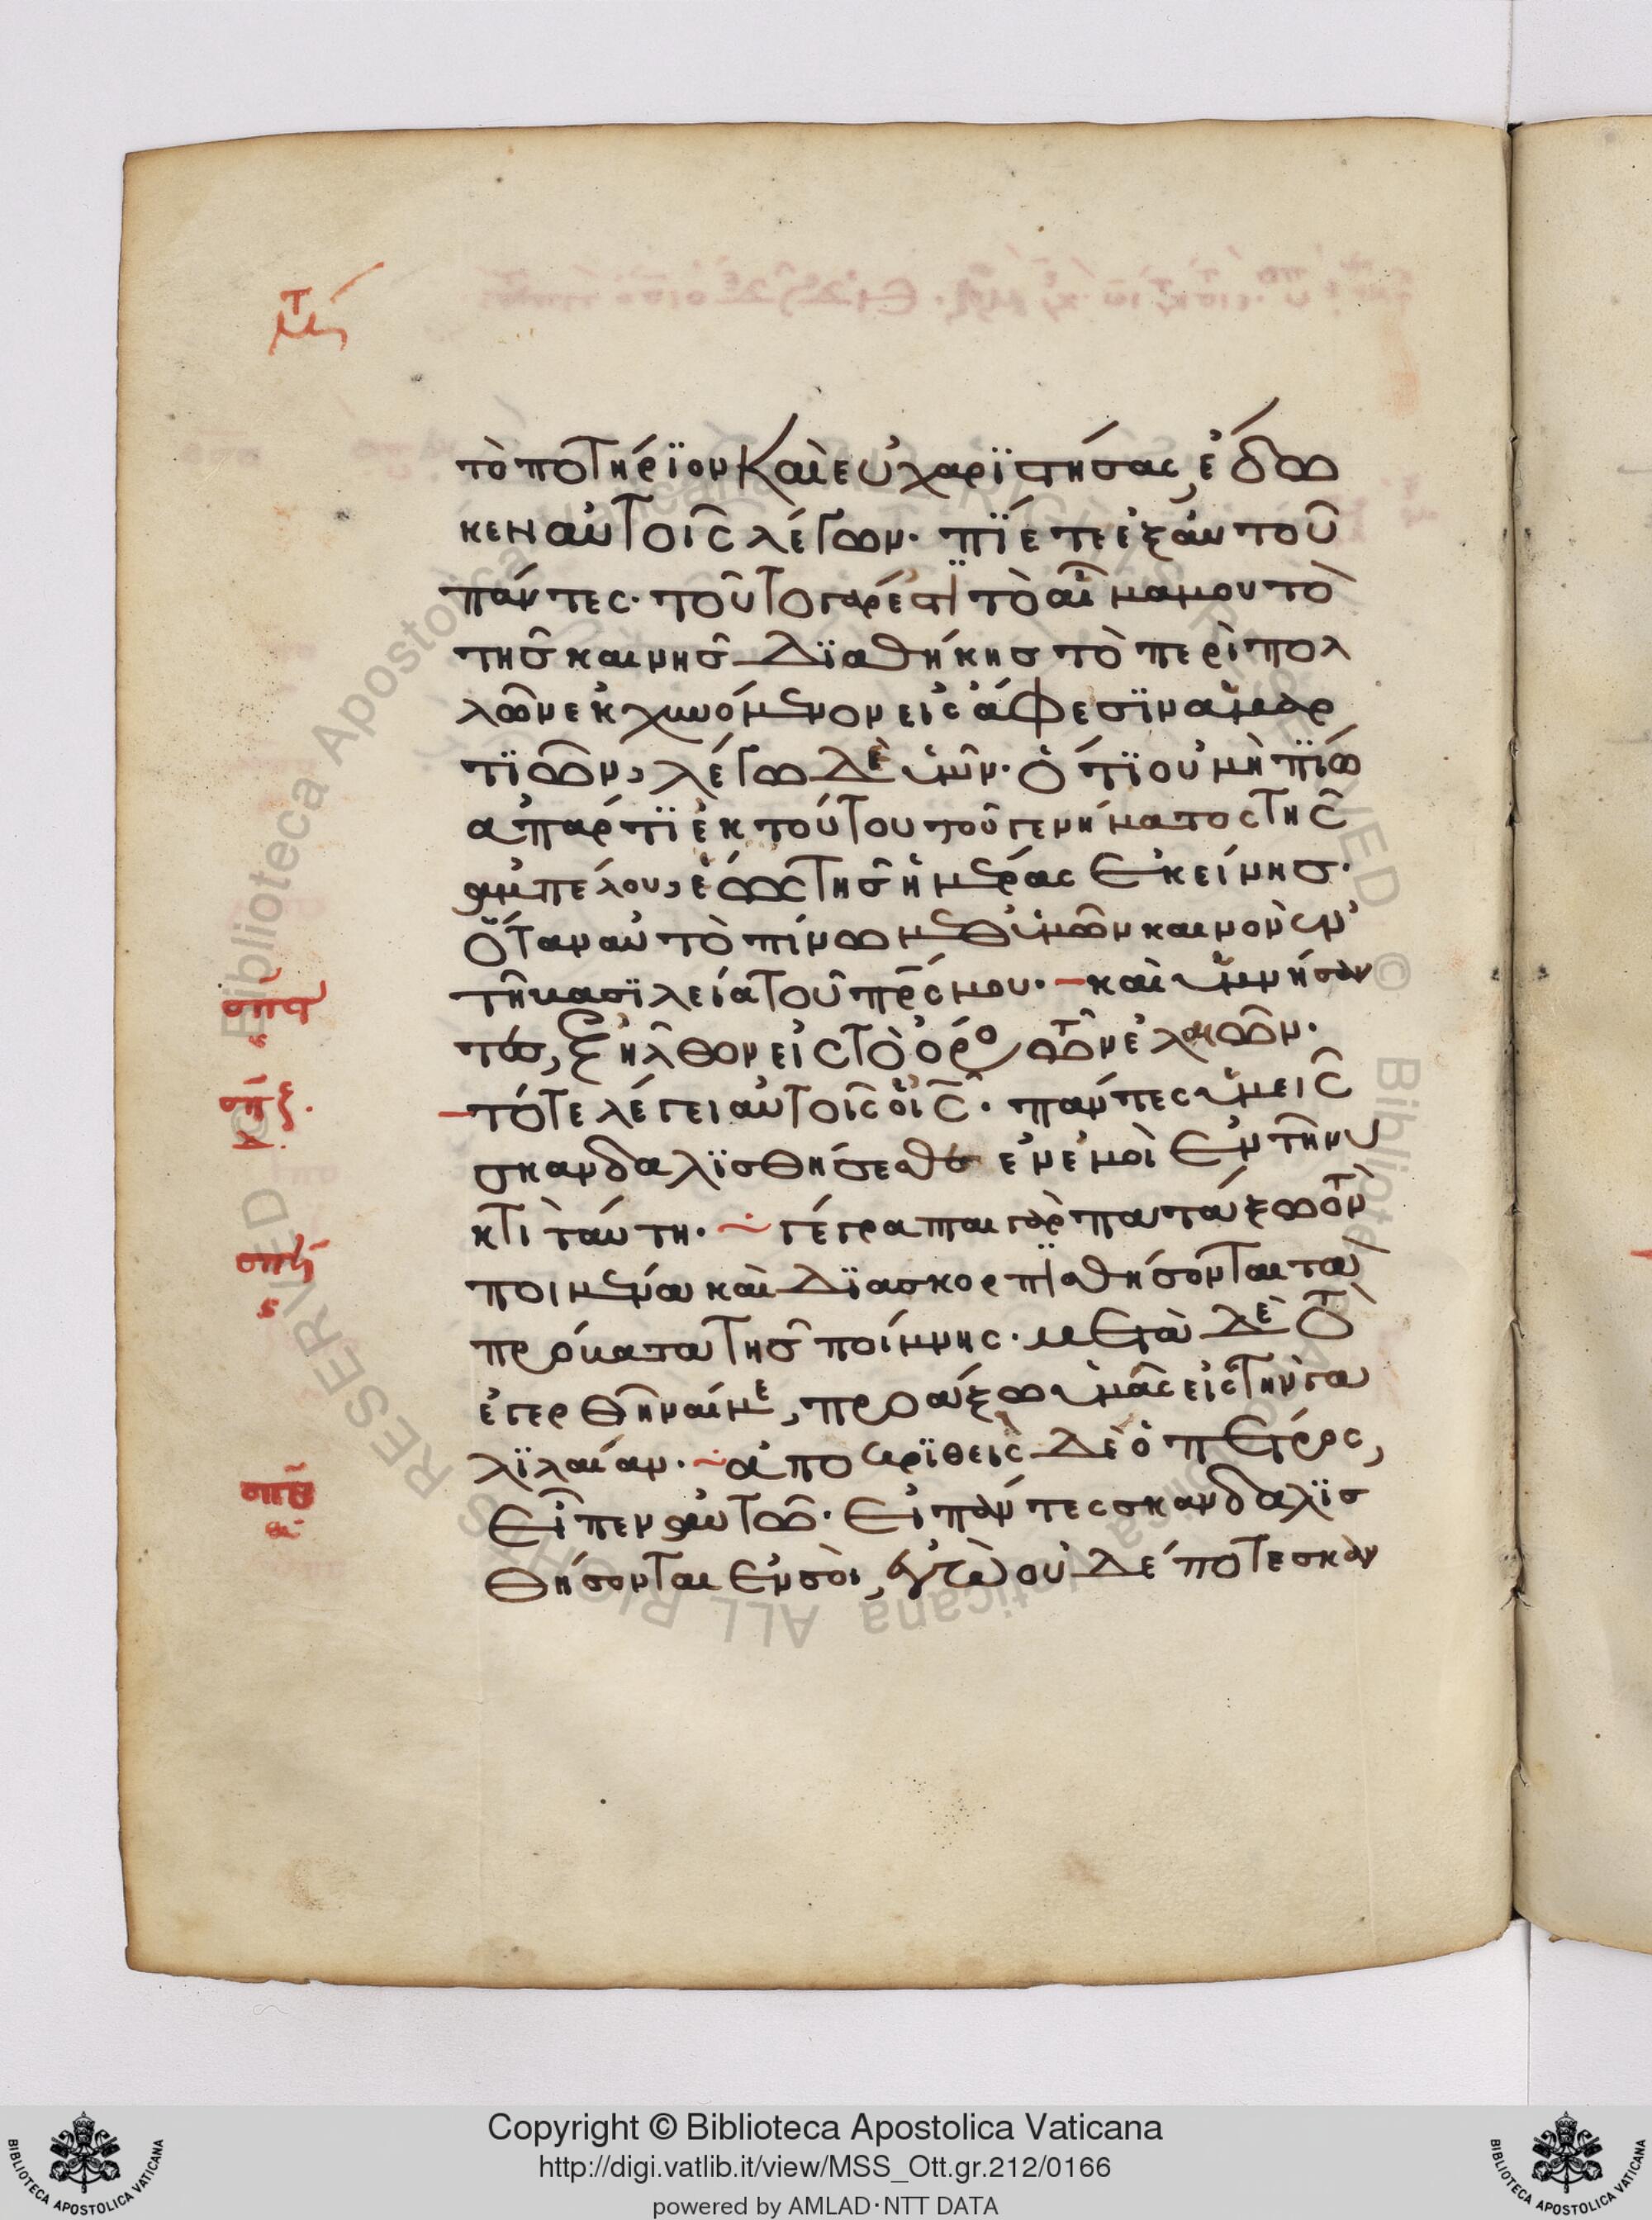 τὸ ποτήρϊον καὶ εὐχαρϊστήσας, ἔδω
κεν αὐτοῖς λέγων· πΐετε ἐξ αὐτοῦ
πάντες· τοῦτο γάρ ἐστϊ τὸ αἷμα μου τὸ
τῆς καινῆς δϊαθήκης τὸ περὶ πολ
λῶν ἐκχυνόμενον εἰς ἄφεσϊν ἁμαρ
τϊῶν, λέγω δὲ ὑμῖν· ὅτϊ οὐ μὴ πϊώ
ἀπάρτϊ ἐκ τούτου τοῦ γενήματος τῆς
ἀμπέλου, ἕως τῆς ἡμέρας ἐκείνης·
ὅταν αὐτὸ πίνω μεθ' ὑμῶν καινὸν ἐν
τῆ βασϊλεία τοῦ πρς μου· καὶ ὑμνήσαν
τες, ἐξῆλθον εἰς τὸ ὄρος τῶν ἐλαιῶν·
τότε λέγει αὐτοῖς ὁ ις· πάντες ὑμεῖς
σκανδαλϊσθήσεσθε ἐν ἐμοὶ ἐν τῆ νυ
κτὶ ταύτη· γέγραπται γὰρ πατάξω τὸν
ποιμένα καὶ δϊασκορπϊσθήσονται τὰ
πρόβατα τῆς ποίμνης· μετὰ δὲ τὸ
ἐγερθῆναί με, προάξω ὑμᾶς εἰς τὴν γα
λϊλαίαν· ἀποκρϊθεὶς δὲ ὁ πέτρος,
εἶπεν αὐτῶ· εἰ πάντες σκανδαλϊσ
θήσονται ἐν σοὶ, ἐγὼ οὐδέποτε σκαν
Copyright © Biblioteca Apostolica Vaticana
http://digi.vatlib.it/view/MSS_Ott.gr.212/0166
powered by AMLAD·NTT DATA
BIBLIOTECA APOSTOLICA VATICANA
BIBLIOTECA APOSTOLICA VATICANA